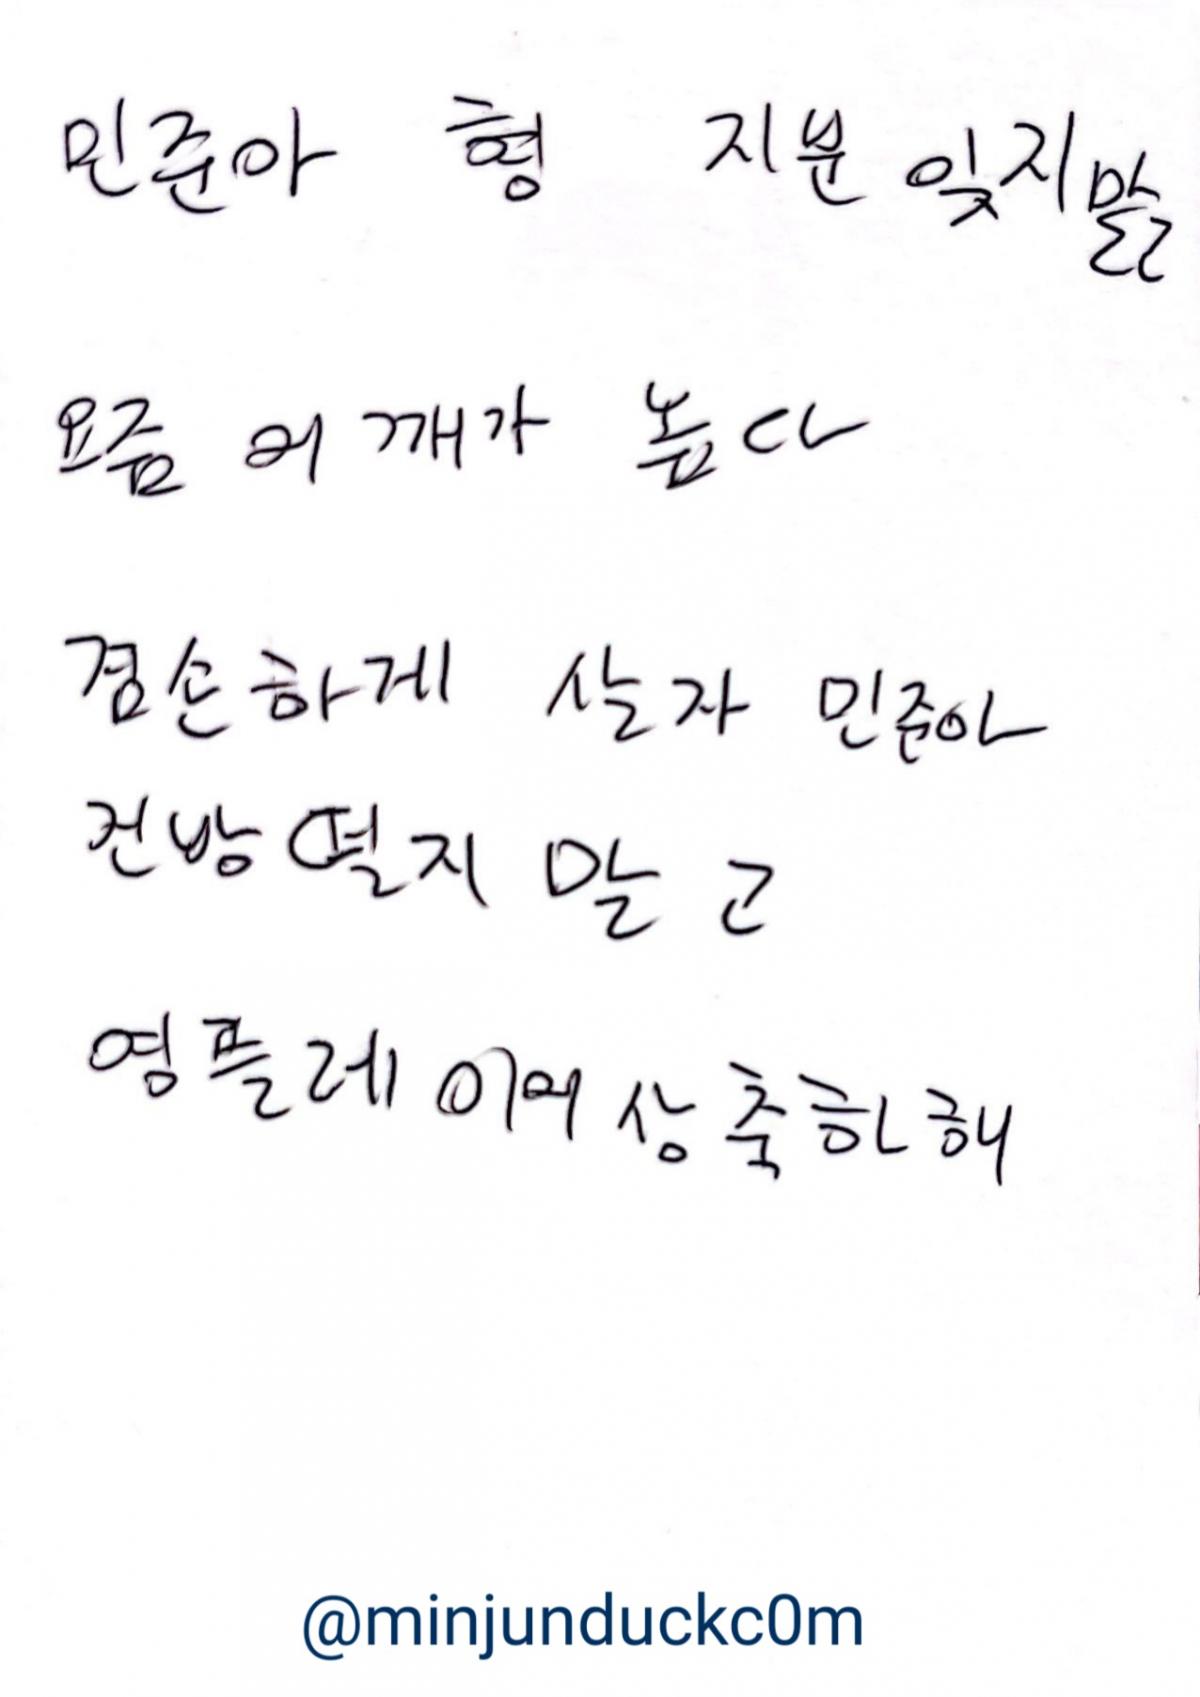 민준아 형 지분 잊지말
요즘 어깨가 높다
겸손하게 살자 민준아
건방떨지 말고
영플레이어상 축하해
@minjunduckc0m